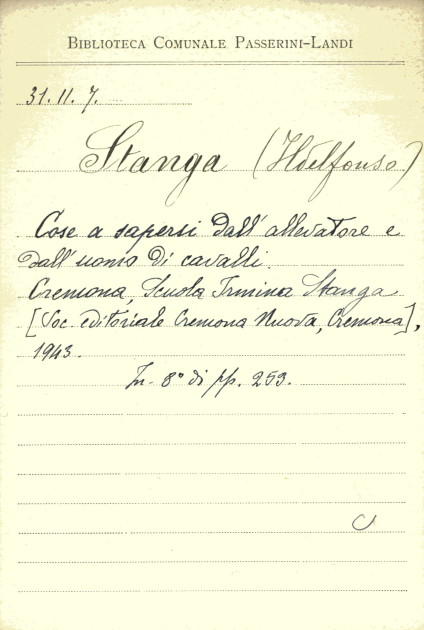 BIBLIOTECA COMUNALE PASSERINI-LANDI
31. II. 7.
Stanga (Ildelfonso)
Cose a sapersi dall'allevatore e
dall'uomo di cavalli.
Cremona, Scuola Irmina Stanga
[Soc. editoriale Cremona Nuova, Cremona],
1943.
In-8° di pp. 253.
C